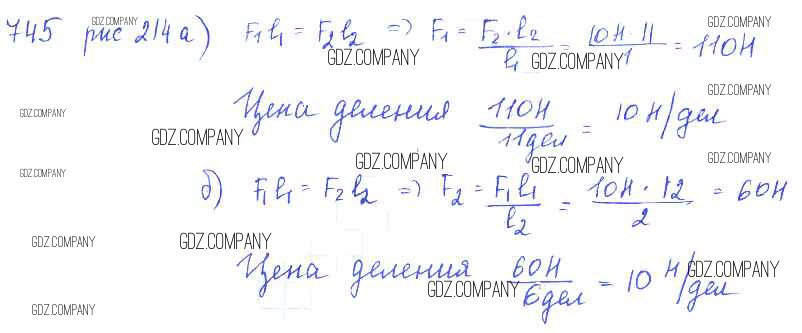 GDZ.COMPANY GDZ.COMPANY
745 рис 214а) F₁l₁ = F₂l₂ => F₁ = F₂·l₂/l₁ = 10Н·11/1 = 110Н
GDZ.COMPANY GDZ.COMPANY
GDZ.COMPANY GDZ.COMPANY
Цена деления 110Н/11дел = 10 Н/дел
GDZ.COMPANY
GDZ.COMPANY GDZ.COMPANY GDZ.COMPANY
GDZ.COMPANY
б) F₁l₁ = F₂l₂ => F₂ = F₁l₁/l₂ = 10Н·12/2 = 60Н
GDZ.COMPANY GDZ.COMPANY
Цена деления 60Н/6дел = 10 Н/дел
GDZ.COMPANY GDZ.COMPANY
GDZ.COMPANY